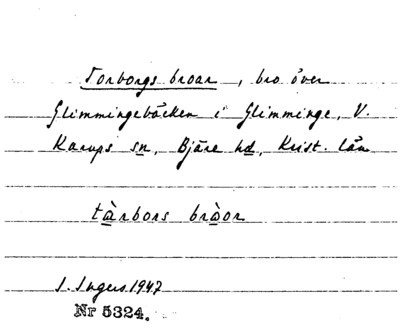 Torborgs broar, bro över
Glimmingebäcken i Glimminge, V.
Karups sn, Bjäre hd, Krist. län
tàrbors bràor
I. Ingers 1947
Nr 5324.